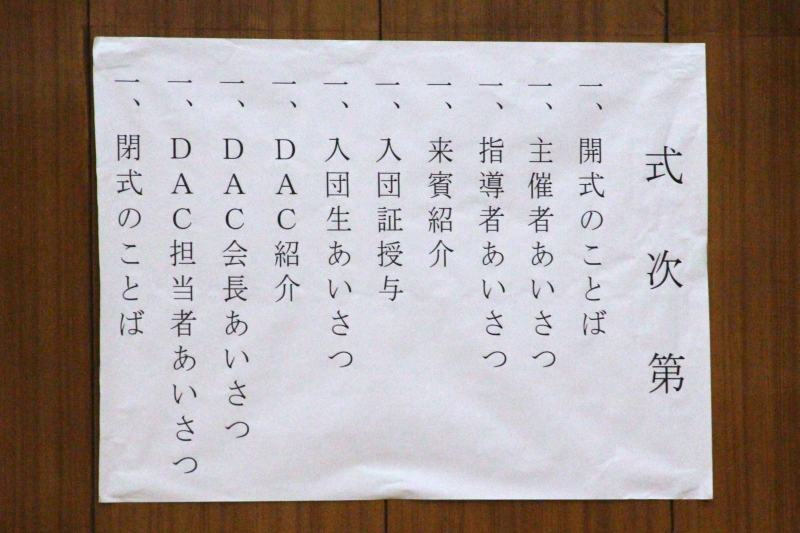 式次第
一、開式のことば
一、主催者あいさつ
一、指導者あいさつ
一、来賓紹介
一、入団証授与
一、入団生あいさつ
一、DAC紹介
一、DAC会長あいさつ
一、DAC担当者あいさつ
一、閉式のことば